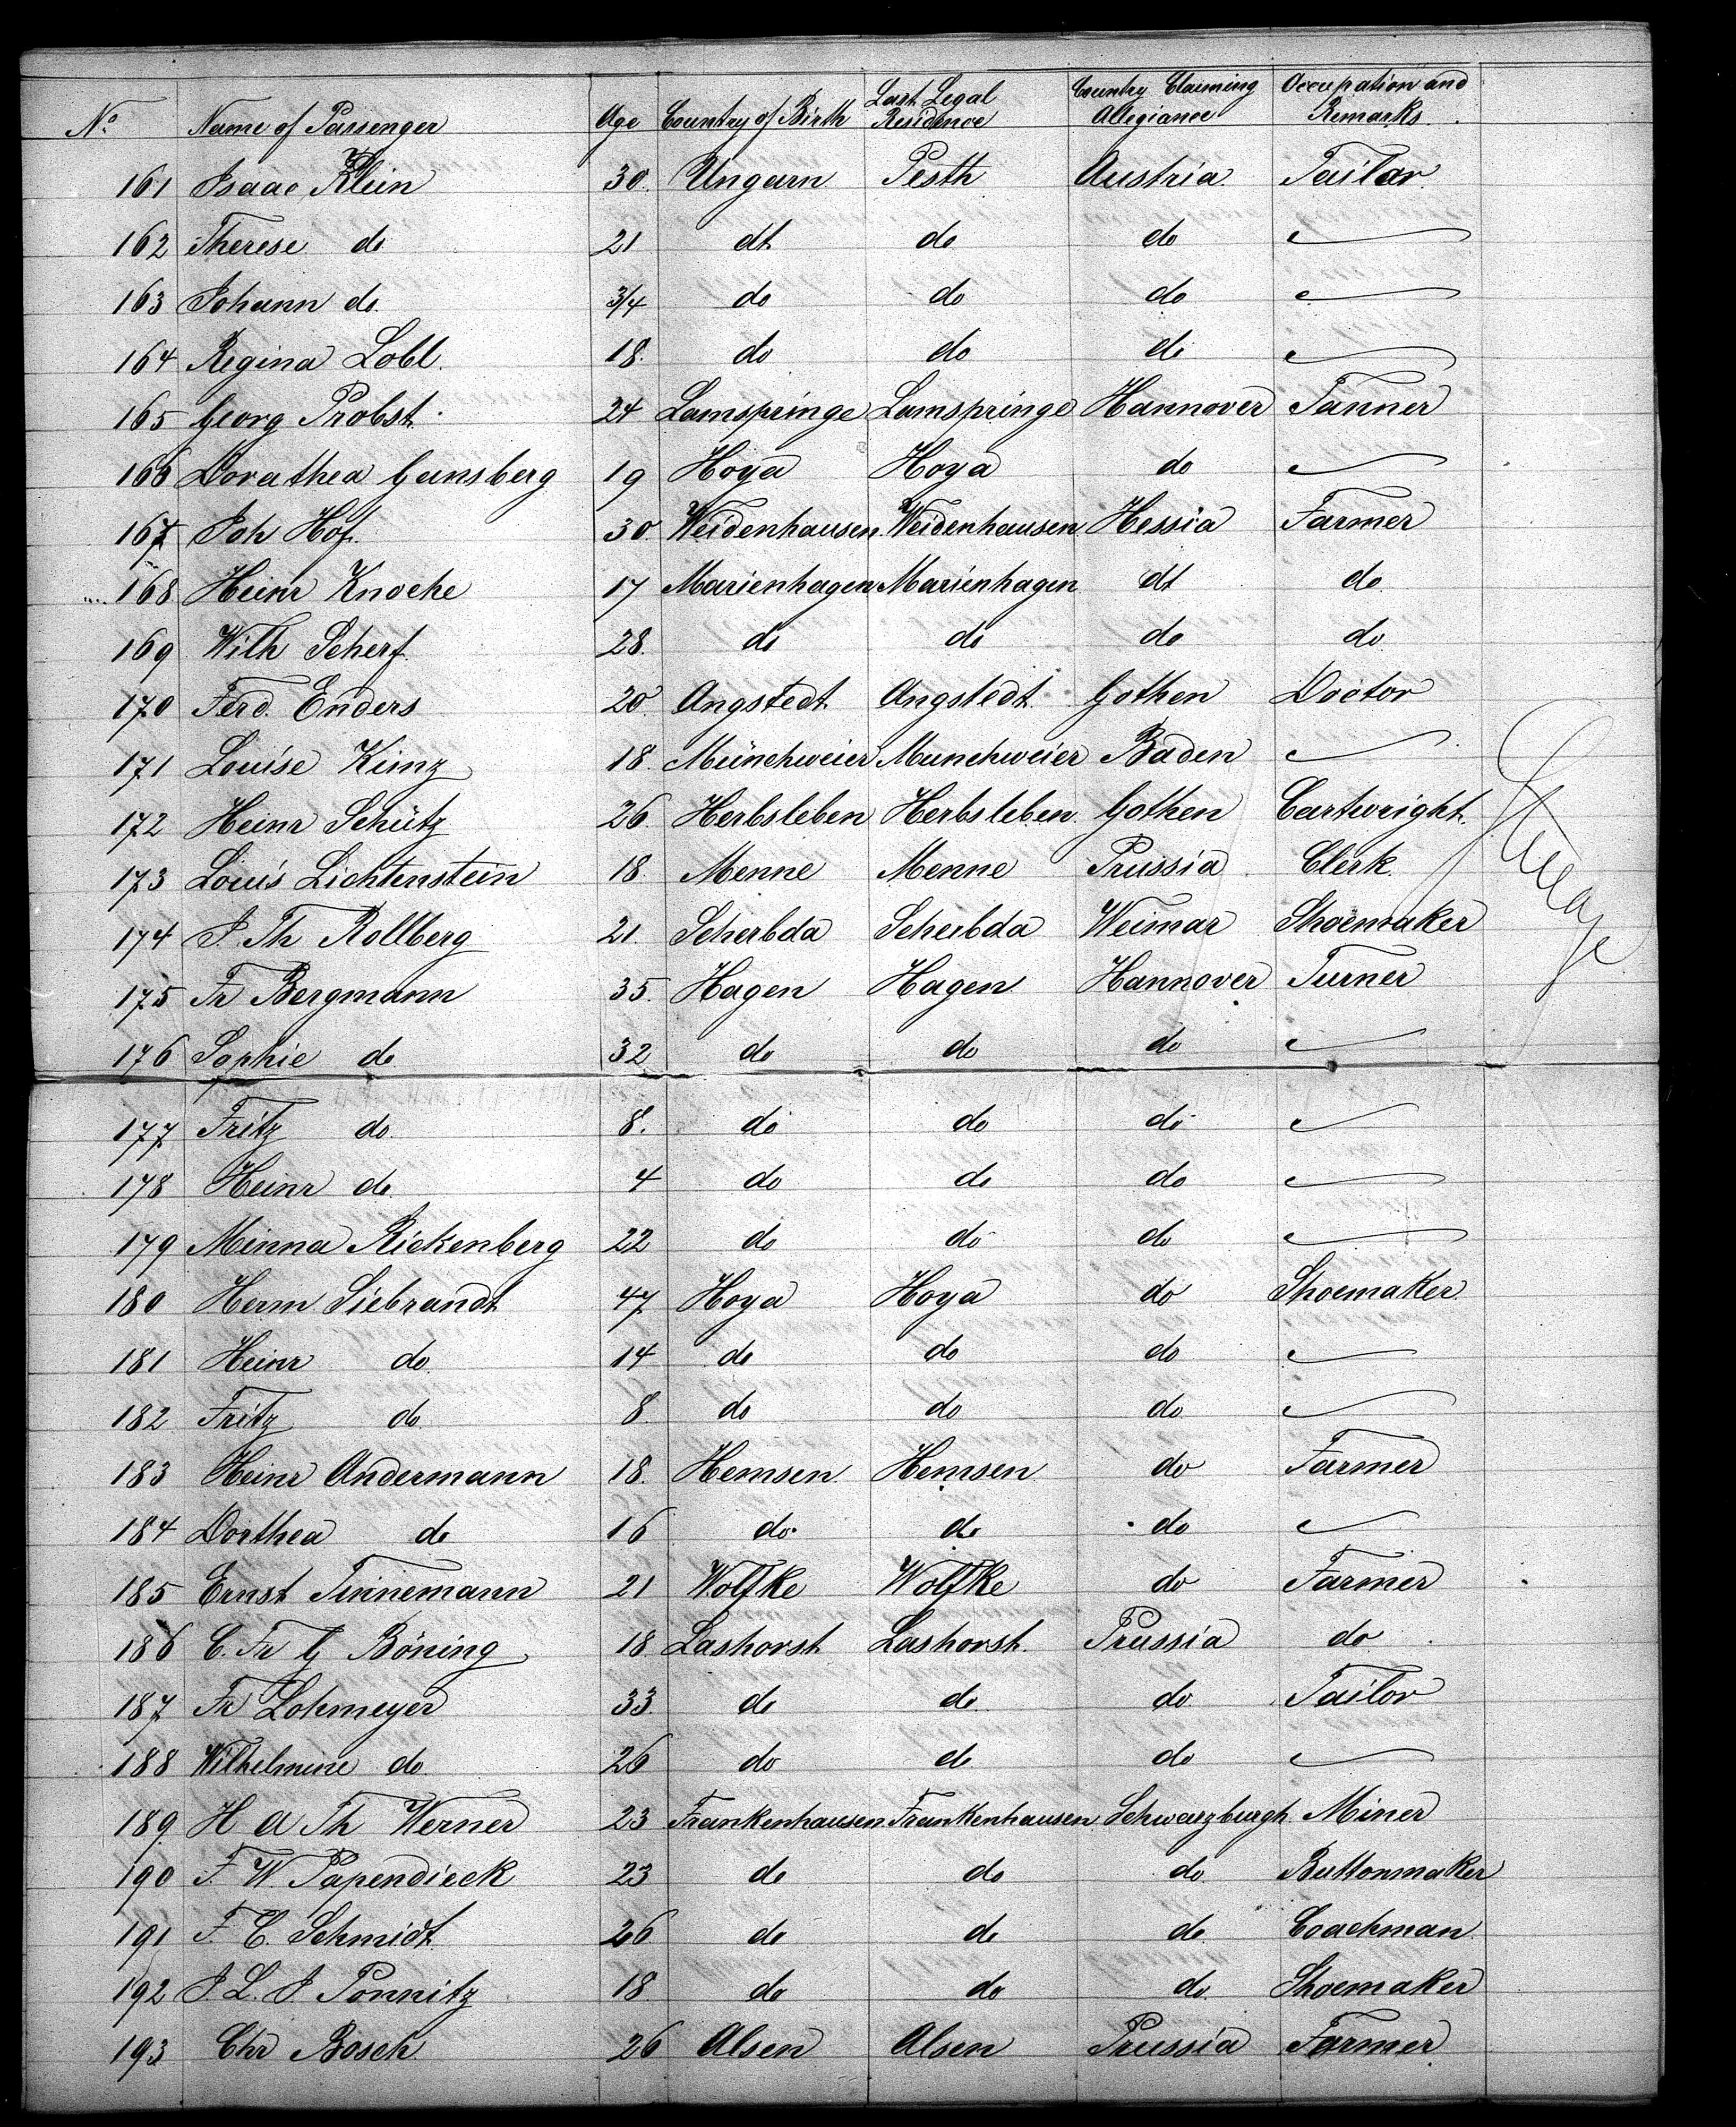 No Name of Passenger Age Country of Birth Last Legal Residence Country Claiming Allegiance Occupation and Remarks.
161 Isaac Klein 30. Ungarn Pesth Austria. Tailor.
162 Therese do 21 dt do do
163 Johann do. 3/4 do do do
164 Regina Lobl. 18. do do do
165 Georg Probst. 24 Lamspringe Lamspringe Hannover Tanner
166 Dorathea Gansberg 19 Hoya Hoya do
167 Joh Hof. 30. Weidenhausen. Weidenhausen Hessia Farmer
168 Heinr Knocke 17 Marienhagen Marienhagen dt do.
169 Wilh Scherf. 28. do do do do.
170 Ferd. Enders 20. Angstedt Angstedt. Gothen Doctor
171 Louise Kunz 18. Münchweier Munchweier Baden
172 Heinr Schütz 26. Herbsleben Herbsleben. Gothen Cartwright.
173 Louis Lichtenstein 18. Menne Menne Prussia. Clerk.
174 J. Th Rollberg 21. Scherbda Scherbda Weimar Shoemaker
175 Fr Bergmann 35. Hagen Hagen Hannover Turner
176 Sophie do 32 do do do
177 Fritz do. 8. do do do
178 Heinr do. 4 do do do
179 Minna Rickenberg 22 do do do
180 Herm Siebrandt 47 Hoya Hoya do Shoemaker
181 Heinr do 14 do do do
182 Fritz do 8 do do do.
183 Heinr Andermann 18. Hemsen Hemsen do Farmer
184 Dorthea do 16 do. do do
185 Ernst Tinnemann 21 Wolfke Wolfke do Farmer
186 C. Fr G Böning 18 Lashorst Lashorst. Prussia do
187 Fr Lohmeyer 33. do do. do. Tailor
188 Wilhelmine do 26 do do do
189 H A Th Werner 23 Frankenhausen Frankenhausen Schwarzburgh. Miner
190 F. W. Papendieck 23 do do do. Buttonmaker
191 F. C. Schmidt 26 do do do. Coachman
192 J. L. J. Ponnitz 18 do do do. Shoemaker
193 Chr Bosch. 26 Alsen Alsen Prussia Farmer